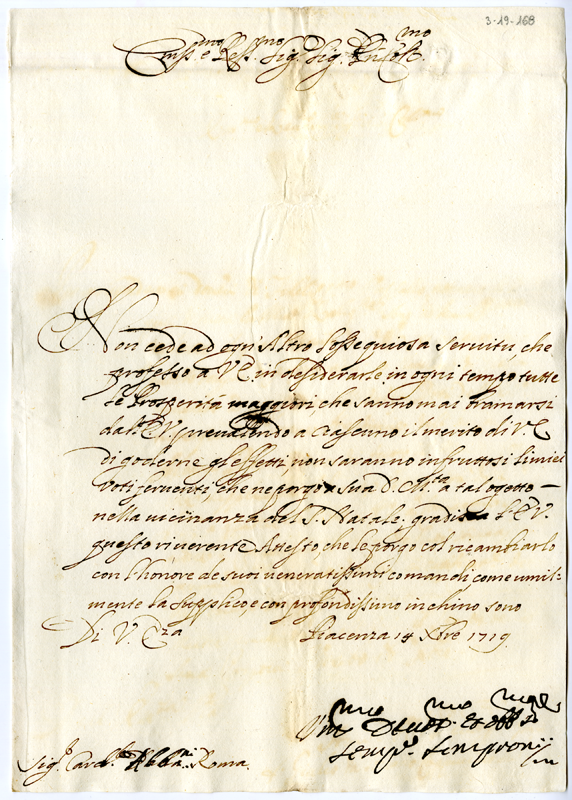 3-19-168
Em.mo e Rev.mo Sig.r Sig.r P.ron Col.mo
Non cede ad ogni Altro l'ossequiosa servitù, che
professo a V.E. in desiderarle in ogni tempo tutte
le Prosperità maggiori che sanno mai bramarsi
dall'E.V. prevalendo a ciascuno il merito di V.E.
di goderne gl'effetti non saranno infruttosi li miei
voti ferventi, che ne porgo a sua D. M.tà a tal ogetto
nella vicinanza del S. Natale. gradisca l'E.V.
questo riverente Attesto, che le porgo col ricambiarlo
con l'honore de suoi veneratissimi comandi, come umil-
mente la supplico, e con profondissimo inchino sono
Di V. E.za Piacenza 14 Xbre 1719
Um.mo Devot.mo et obb.mo
Semp.o Sempronij
Sig.r Card.l Albani Roma.